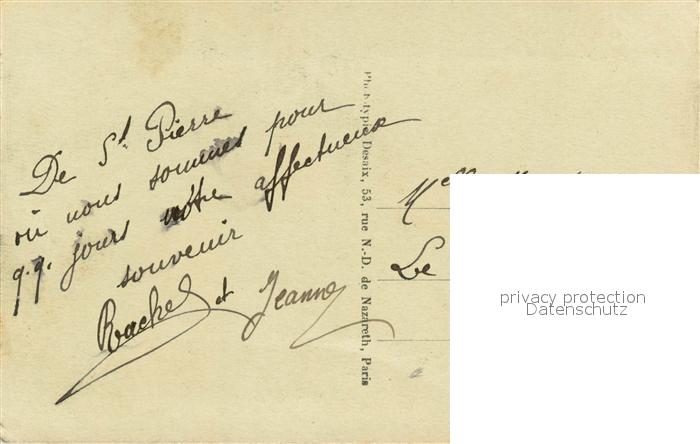 De St Pierre
où nous sommes pour
q.q. jours notre affectueux
souvenir
Rachel et Jeanne
Phototypie Desaix, 53, rue N.-D. de Nazareth, Paris
Le
privacy protection
Datenschutz